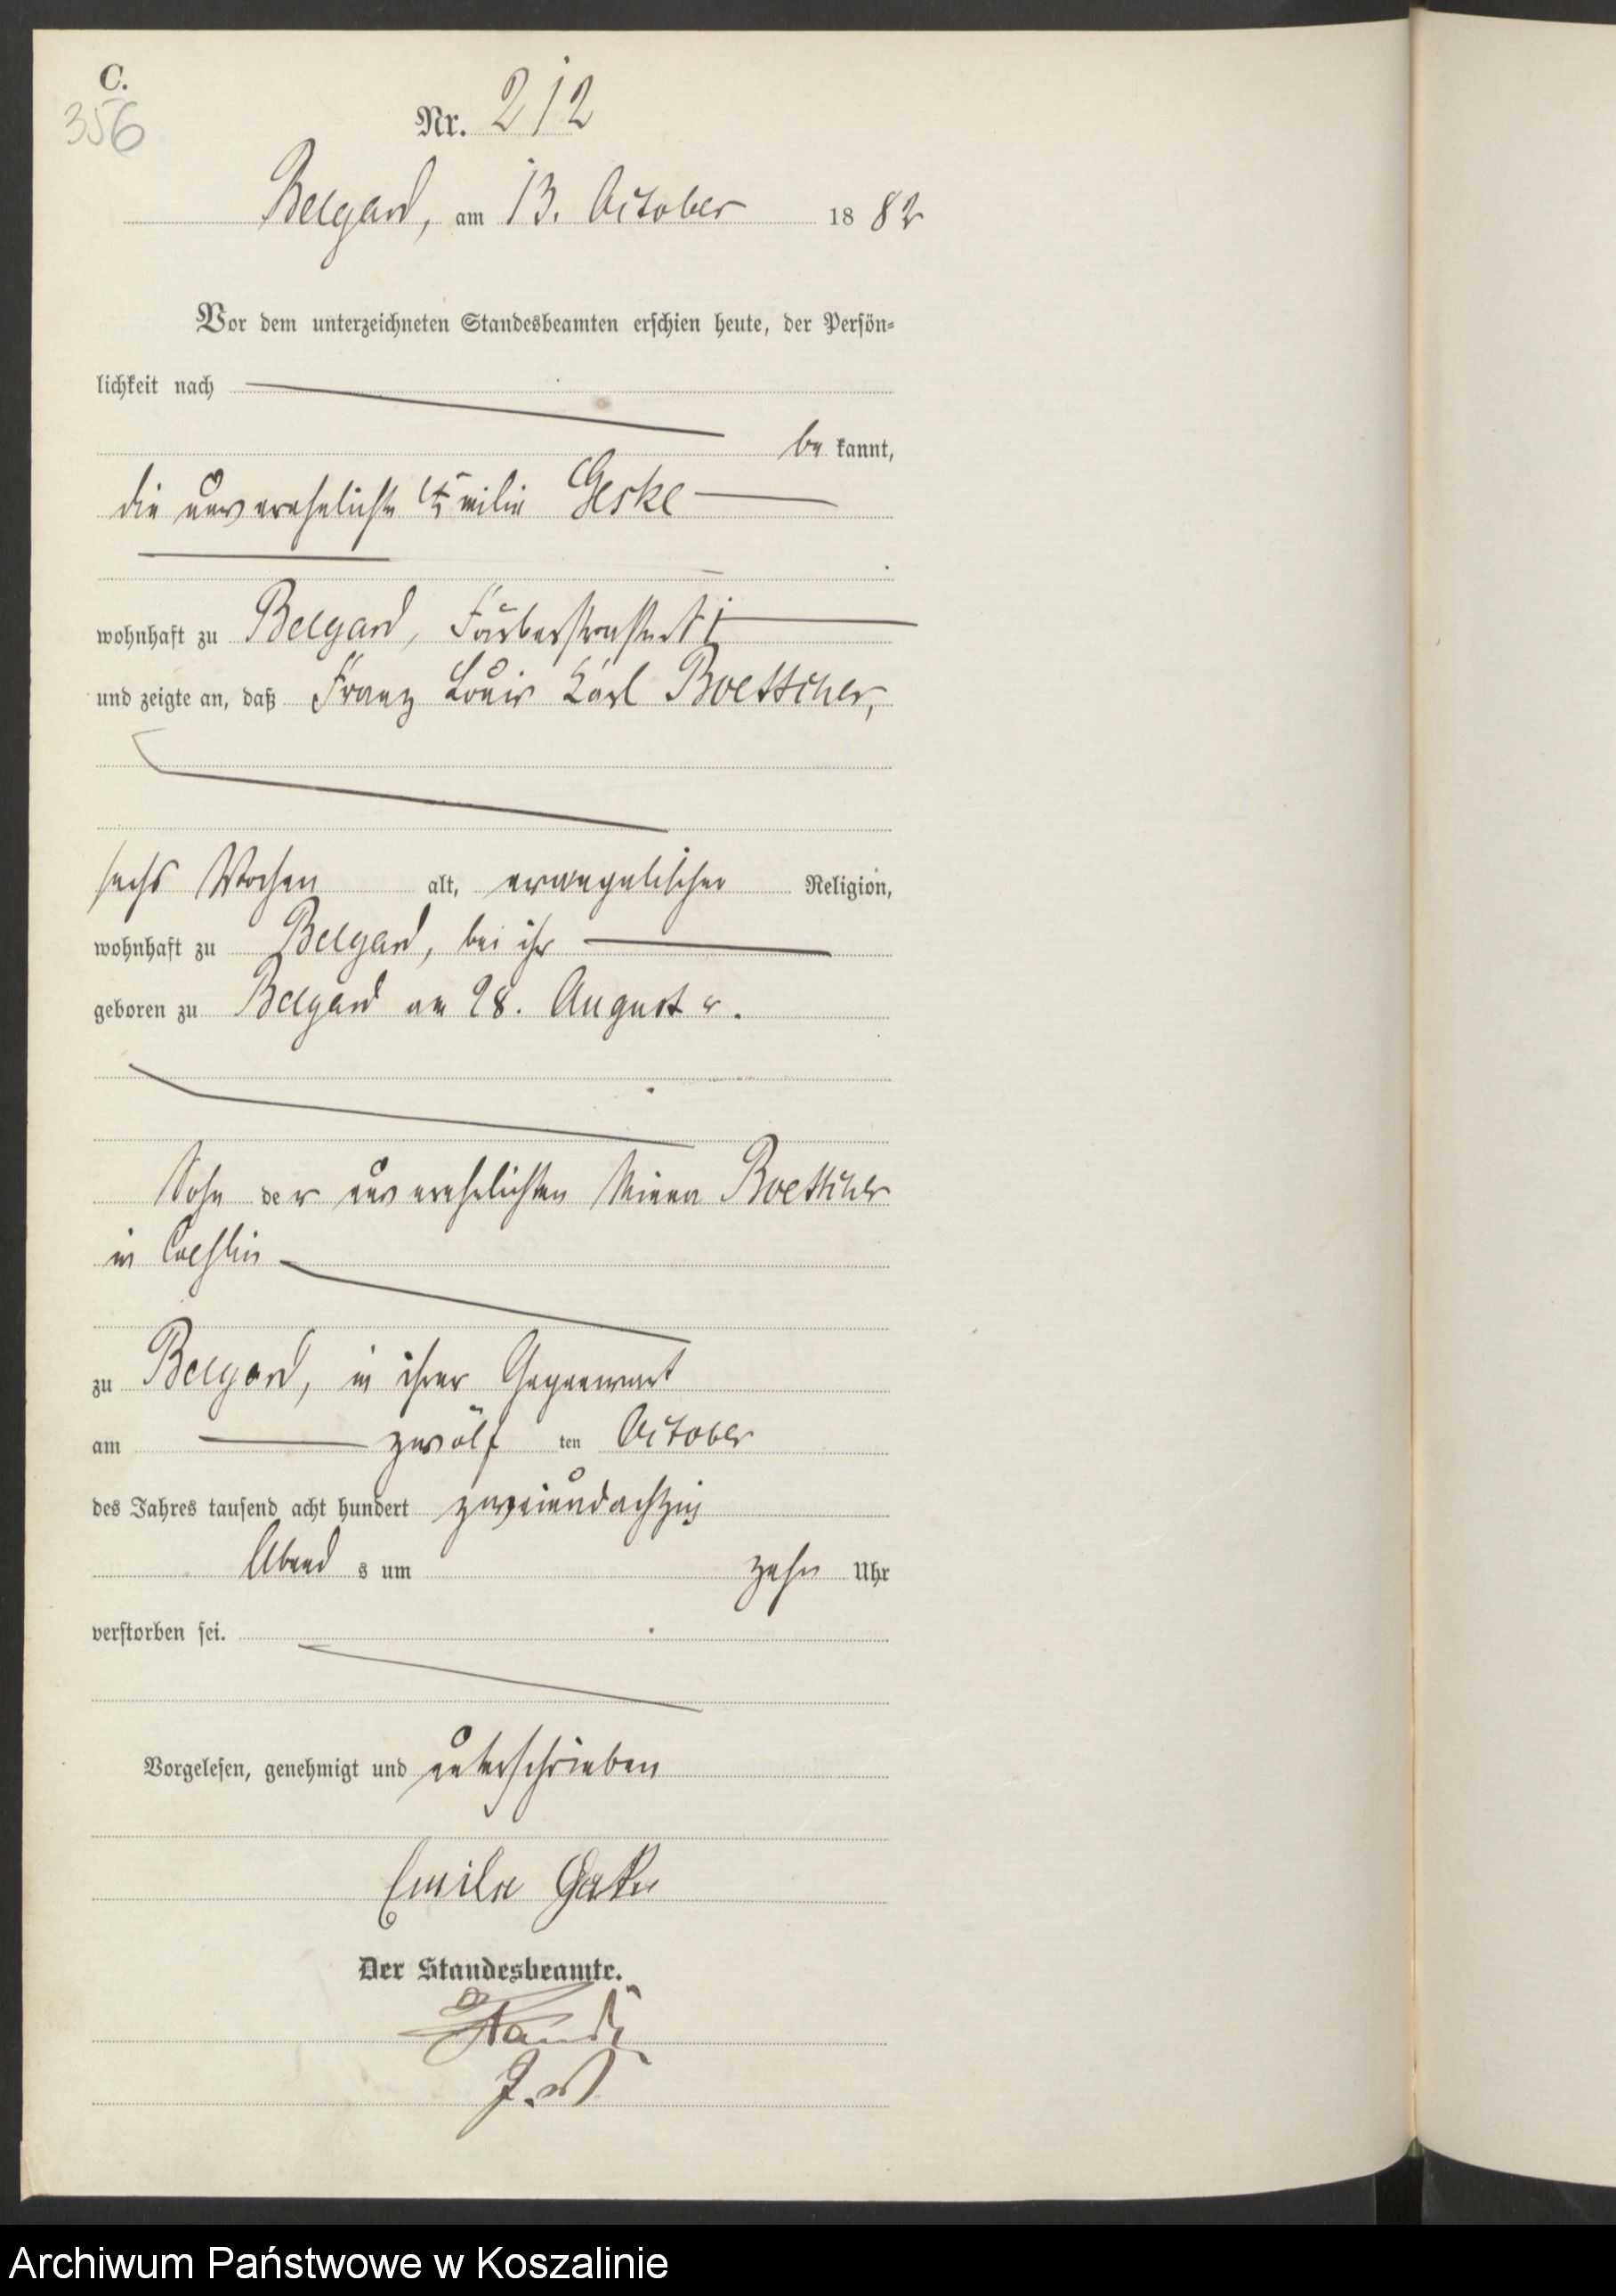 C.
356
Nr. 212
Belgard, am 13. October 1882
Vor dem unterzeichneten Standesbeamten erschien heute, der Persön-
lichkeit nach
bekannt,
die unverehelichte Emilie Geske
wohnhaft zu Belgard, Färberstraße
und zeigte an, daß Franz Louis Karl Boettcher,
sechs Wochen alt, evangelischer Religion,
wohnhaft zu Belgard, bei ihr
geboren zu Belgard am 28. August
Sohn der unverehelichten Minna Boettcher
in Coeslin
zu Belgard, in ihrer Gegenwart
am zwölf ten October
des Jahres tausend acht hundert zweiundachtzig
Abend s um zehn Uhr
verstorben sei.
Vorgelesen, genehmigt und unterschrieben
Emilie Geske
Der Standesbeamte.
Archiwum Państwowe w Koszalinie